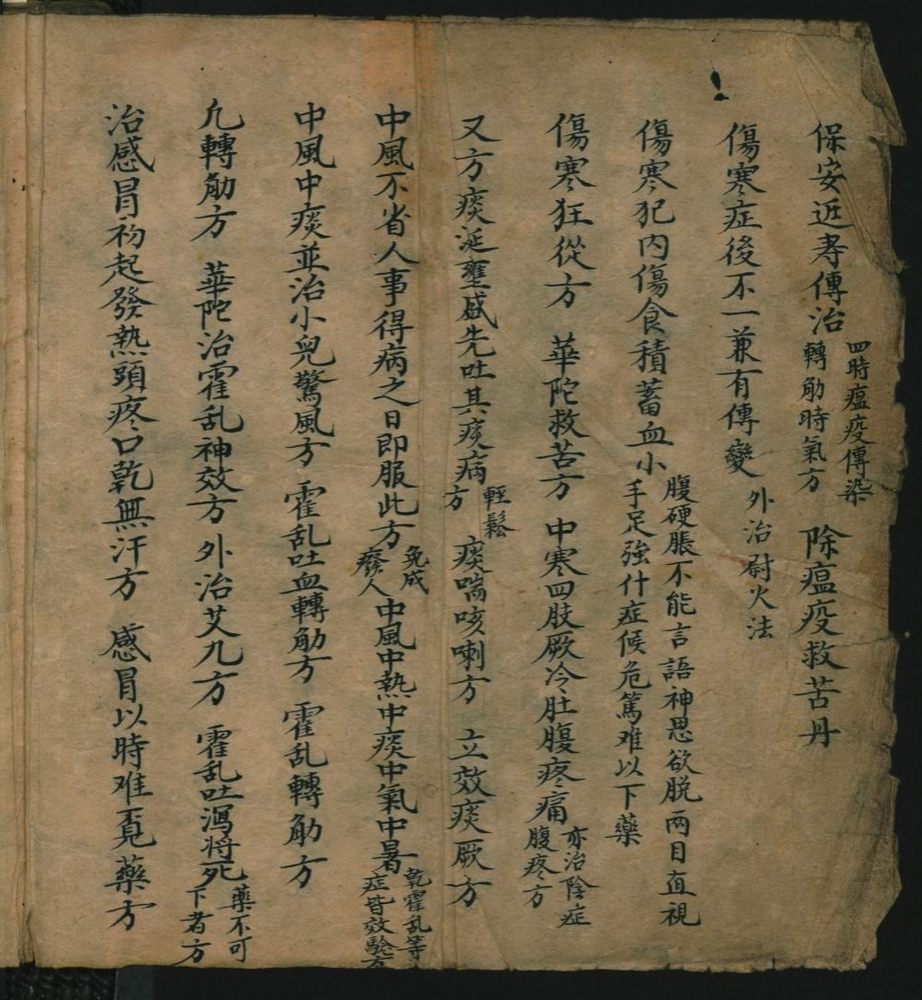 保安近壽傳治四時瘟疫傳染轉觔時氣方 除瘟疫救苦丹
傷寒症後不一兼有傳變 外治尉火法
傷寒犯內傷食積蓄血小腹硬脹不能言語神思欲脱兩目直視手足強什症候危篤难以下藥
傷寒狂從方 華陀救苦方 中寒四肢厥冷肚腹疼痛亦治陰症腹疼方
又方痰涎壅盛先吐其痰病輕鬆方 痰喘咳喇方 立效痰厥方
中風不省人事得病之日即服此方免成癈人 中風中熱中痰中氣中暑乾霍乱等症皆效驗
中風中痰並治小兒驚風方 霍乱吐血轉觔方 霍乱轉觔方
凢轉觔方 華陀治霍乱神效方 外治艾凢方 霍乱吐瀉將死藥不可下者方
治感冒初起發熱頭疼口乾無汗方 感冒以時难覓藥方